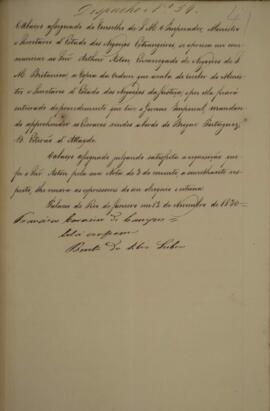 Despacho Nº 39.
O abaixo assignado do Conselho de S. M. o Imperador, Ministro
e Secretario d'Estado dos Negocios Estrangeiros, se apressa em com-
municar ao Snr. Arthur Aston, Encarregado de Negocios de S.
M. Britanica, a Copia da Ordem que acaba de receber do Minis-
tro e Secretario d'Estado dos Negocios da Justiça, por ella ficará
inteirado do procedimento que teve o Governo Imperial, mandan-
do apprehender os Escravos vindos a bordo do Brigue Portuguez
O abaixo assignado julgando satisfeita a requisição
pelo Snr. Aston pela sua Nota de 3 do corrente, a semelhante res-
peito, lhe renova as expressoens de sua obsequiosa estima.
Palacio do Rio de Janeiro em 12 de Novembro de 1830
Francisco Carneiro de Campos
Está conforme
Bento da Silva Lisboa